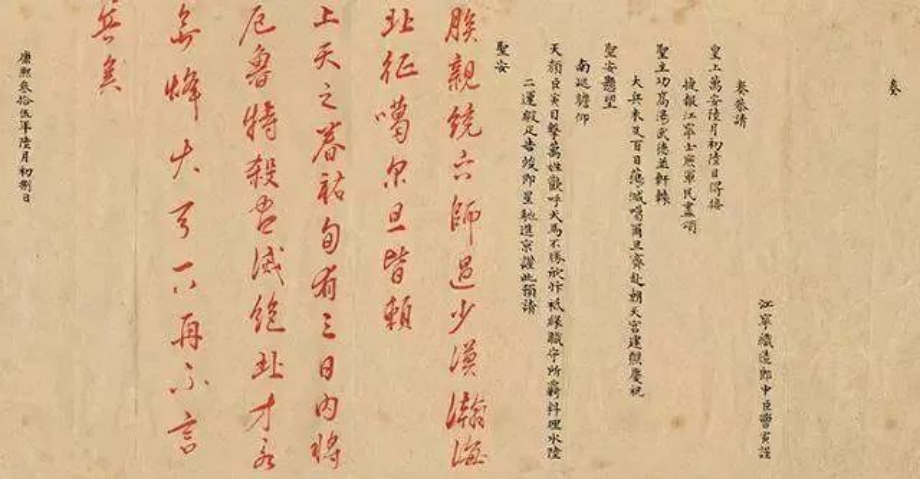 奏
江寧織造郎中臣曹寅謹
奏恭請
皇上萬安陸月初陸日得接
捷報江寧士庶軍民盡頌
聖主功高湯武德並軒轅
大兵未及百日蕩滅噶爾旦齊赴朝天宮建醮慶祝
聖安懸望
南巡瞻仰
天顏臣寅目擊萬姓歡呼犬馬不勝欣忭祗緣職守所羈料理水陸
二運緞疋告竣即星馳進京謹此預請
聖安
朕親統六師過少漠瀚海
北征噶尔旦皆賴
上天之眷祐旬有三日內將
厄魯特殺尽滅絕北方永
無烽火天下再不言
兵矣
康熙叁拾伍年陸月初捌日